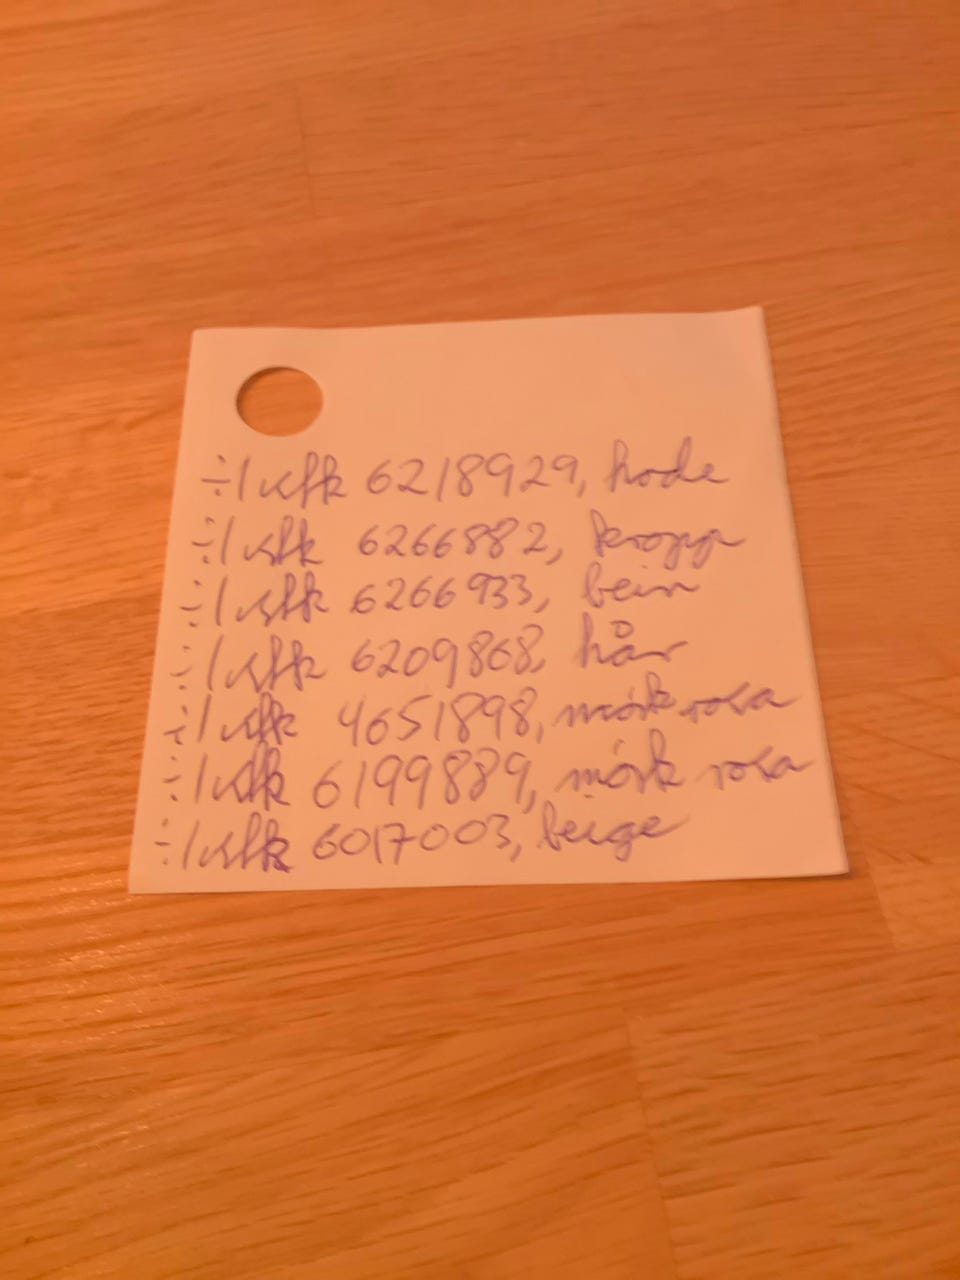 ÷1 stk 6218929, hode
÷1 stk 6266882, kropp
÷1 stk 6266933, bein
÷1 stk 6209868, hår
÷1 stk 4651898, mörk rosa
÷1 stk 6199889, mörk rosa
÷1 stk 6017003, beige